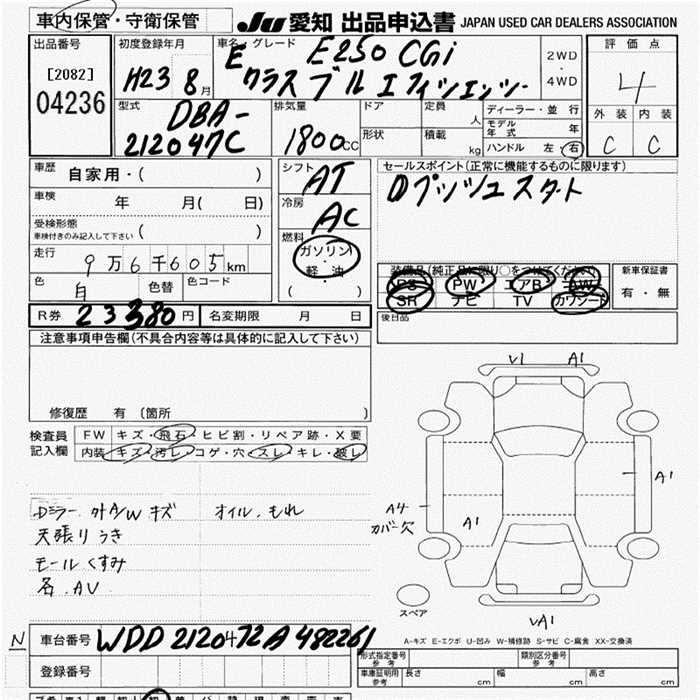 車内保管・守衛保管
JU 愛知 出品申込書 JAPAN USED CAR DEALERS ASSOCIATION
出品番号
[2082]
04236
初度登録年月
H23 8月
車名・グレード
E E250 CGi
クラス ブルーエフィシェンシー
2WD
・
4WD
評価点
4
外装 内装
C C
型式
DBA-
212047C
排気量
1800cc
ドア
形状
定員
人
積載
kg
ディーラー・並行
モデル年式 年
ハンドル 左・右
車歴
自家用・( )
車検
年 月( 日)
受検形態
車検付きのみ記入して下さい ( )
走行
9万6千605km
色
白
色替
色コード
シフト
AT
冷房
AC
燃料
ガソリン
・
軽油
( )
セールスポイント(正常に機能するものに限ります)
Dプッシュスタート
装備品(純正品に限り○をつけてください)
PS PW エアB AW
SR ナビ TV カワシート
新車保証書
有・無
後日品
R券 23380円
名変期限 月 日
注意事項申告欄(不具合内容等は具体的に記入して下さい)
修復歴 有 〔箇所 〕
検査員
記入欄
FW キズ・飛石・ヒビ割・リペア跡・X要
内装 キズ・汚レ・コゲ・穴・スレ・キレ・破レ
Dミラー. 外A/W キズ オイル. もれ
天張りうき
モールくすみ
各. AU
V1 A1
A1
A4
カバー欠
A1
スペア
VA1
A-キズ E-エクボ U-凹み W-補修跡 S-サビ C-腐食 XX-交換済
N
車台番号 WDD 2120472A482261
登録番号
形式指定番号
参考
類別区分番号
参考
車庫証明用
参考
長さ cm 幅 cm 高さ cm